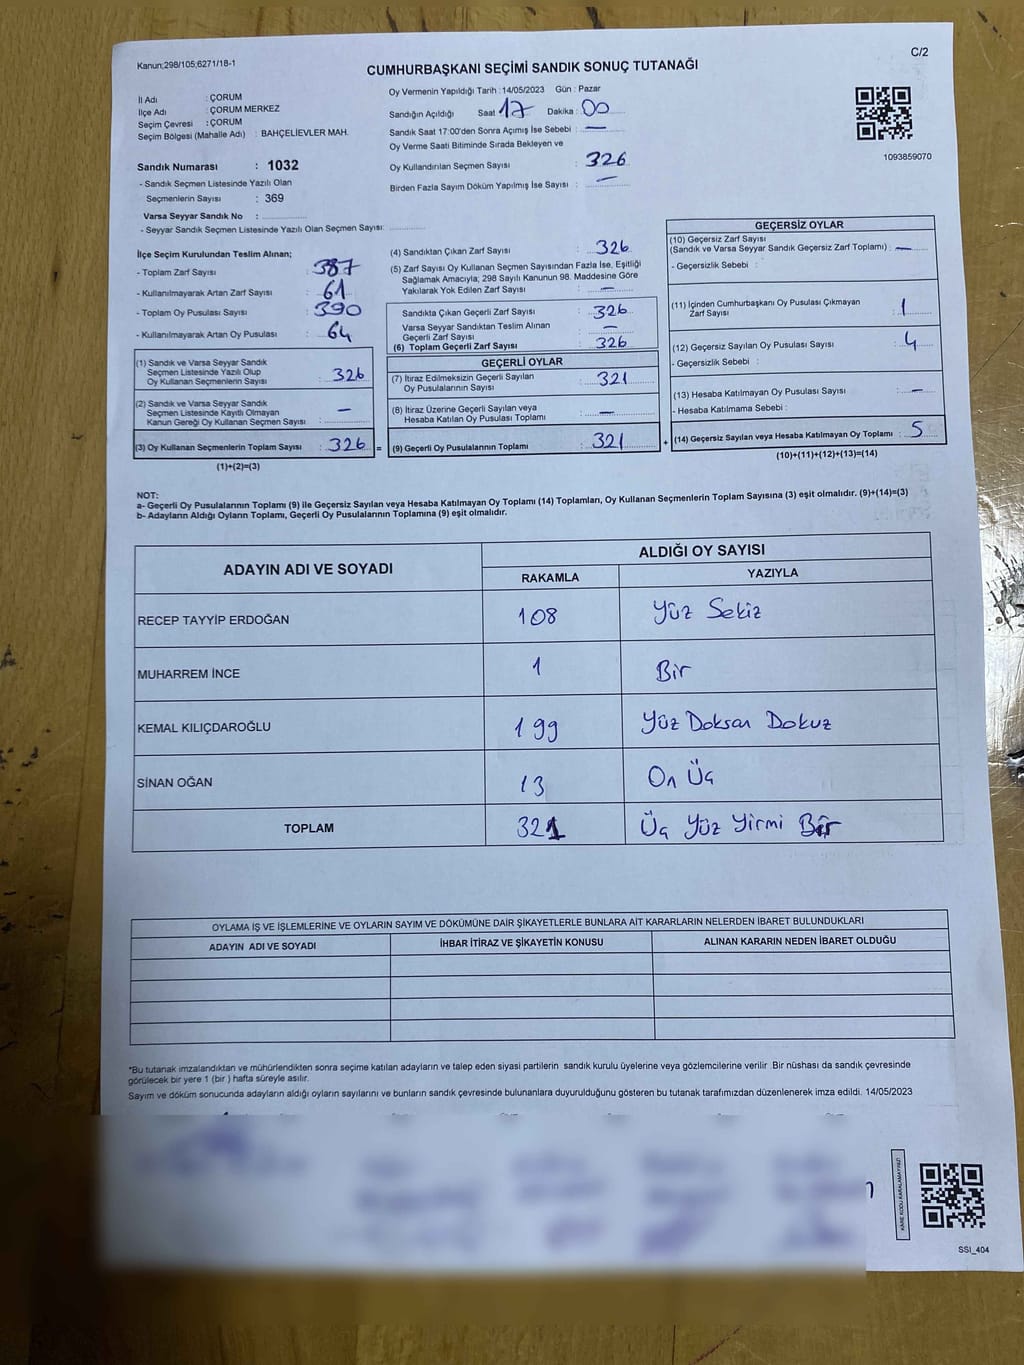 Kanun;298/105;6271/18-1
C/2
CUMHURBAŞKANI SEÇİMİ SANDIK SONUÇ TUTANAĞI
İl Adı : ÇORUM
İlçe Adı : ÇORUM MERKEZ
Seçim Çevresi : ÇORUM
Seçim Bölgesi (Mahalle Adı) : BAHÇELİEVLER MAH.
Sandık Numarası : 1032
- Sandık Seçmen Listesinde Yazılı Olan
Seçmenlerin Sayısı : 369
Varsa Seyyar Sandık No :
- Seyyar Sandık Seçmen Listesinde Yazılı Olan Seçmen Sayısı:
Oy Vermenin Yapıldığı Tarih :14/05/2023 Gün : Pazar
Sandığın Açıldığı Saat 17 Dakika : 00
Sandık Saat 17:00'den Sonra Açımış İse Sebebi : —
Oy Verme Saati Bitiminde Sırada Bekleyen ve
Oy Kullandırılan Seçmen Sayısı : 326
Birden Fazla Sayım Döküm Yapılmış İse Sayısı : —
1093859070
İlçe Seçim Kurulundan Teslim Alınan;
- Toplam Zarf Sayısı : 387
- Kullanılmayarak Artan Zarf Sayısı : 61
- Toplam Oy Pusulası Sayısı : 390
- Kullanılmayarak Artan Oy Pusulası : 64
(1) Sandık ve Varsa Seyyar Sandık
Seçmen Listesinde Yazılı Olup
Oy Kullanan Seçmenlerin Sayısı : 326
(2) Sandık ve Varsa Seyyar Sandık
Seçmen Listesinde Kayıtlı Olmayan
Kanun Gereği Oy Kullanan Seçmen Sayısı : —
(3) Oy Kullanan Seçmenlerin Toplam Sayısı : 326 =
(1)+(2)=(3)
(4) Sandıktan Çıkan Zarf Sayısı : 326
(5) Zarf Sayısı Oy Kullanan Seçmen Sayısından Fazla İse, Eşitliği
Sağlamak Amacıyla, 298 Sayılı Kanunun 98. Maddesine Göre
Yakılarak Yok Edilen Zarf Sayısı : —
Sandıkta Çıkan Geçerli Zarf Sayısı : 326
Varsa Seyyar Sandıktan Teslim Alınan
Geçerli Zarf Sayısı : —
(6) Toplam Geçerli Zarf Sayısı : 326
GEÇERLİ OYLAR
(7) İtiraz Edilmeksizin Geçerli Sayılan
Oy Pusulalarının Sayısı : 321
(8) İtiraz Üzerine Geçerli Sayılan veya
Hesaba Katılan Oy Pusulası Toplamı : —
(9) Geçerli Oy Pusulalarının Toplamı : 321 +
GEÇERSİZ OYLAR
(10) Geçersiz Zarf Sayısı
(Sandık ve Varsa Seyyar Sandık Geçersiz Zarf Toplamı) : —
- Geçersizlik Sebebi :
(11) İçinden Cumhurbaşkanı Oy Pusulası Çıkmayan
Zarf Sayısı : 1
(12) Geçersiz Sayılan Oy Pusulası Sayısı : 4
- Geçersizlik Sebebi :
(13) Hesaba Katılmayan Oy Pusulası Sayısı : —
- Hesaba Katılmama Sebebi :
(14) Geçersiz Sayılan veya Hesaba Katılmayan Oy Toplamı : 5
(10)+(11)+(12)+(13)=(14)
NOT:
a- Geçerli Oy Pusulalarının Toplamı (9) ile Geçersiz Sayılan veya Hesaba Katılmayan Oy Toplamı (14) Toplamları, Oy Kullanan Seçmenlerin Toplam Sayısına (3) eşit olmalıdır. (9)+(14)=(3)
b- Adayların Aldığı Oyların Toplamı, Geçerli Oy Pusulalarının Toplamına (9) eşit olmalıdır.
ADAYIN ADI VE SOYADI
ALDIĞI OY SAYISI
RAKAMLA YAZIYLA
RECEP TAYYİP ERDOĞAN 108 Yüz Sekiz
MUHARREM İNCE 1 Bir
KEMAL KILIÇDAROĞLU 199 Yüz Doksan Dokuz
SİNAN OĞAN 13 On Üç
TOPLAM 321 Üç Yüz Yirmi Bir
OYLAMA İŞ VE İŞLEMLERİNE VE OYLARIN SAYIM VE DÖKÜMÜNE DAİR ŞİKAYETLERLE BUNLARA AİT KARARLARIN NELERDEN İBARET BULUNDUKLARI
ADAYIN ADI VE SOYADI İHBAR İTİRAZ VE ŞİKAYETİN KONUSU ALINAN KARARIN NEDEN İBARET OLDUĞU
*Bu tutanak imzalandıktan ve mühürlendikten sonra seçime katılan adayların ve talep eden siyasi partilerin sandık kurulu üyelerine veya gözlemcilerine verilir. Bir nüshası da sandık çevresinde
görülecek bir yere 1 (bir ) hafta süreyle asılır.
Sayım ve döküm sonucunda adayların aldığı oyların sayılarını ve bunların sandık çevresinde bulunanlara duyurulduğunu gösteren bu tutanak tarafımızdan düzenlenerek imza edildi. 14/05/2023
KARE KODU KARALAMAYINIZ!
SSI_404